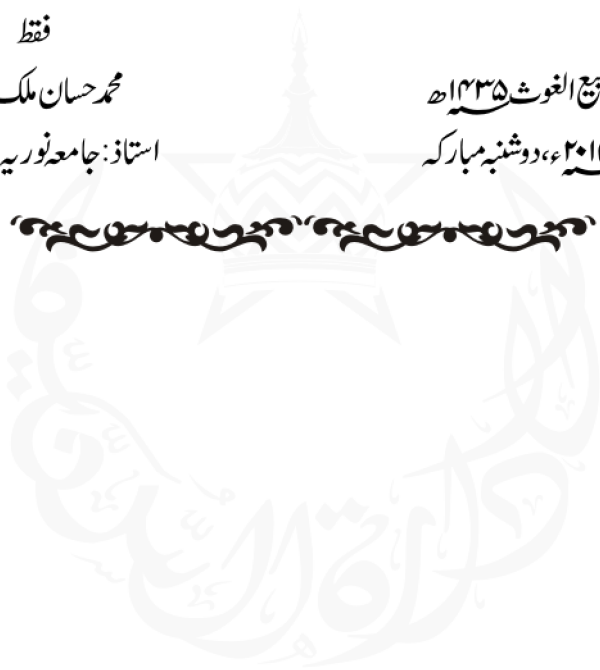 فقط
الغوث ۱۴۳۵ھ محمد حسان ملک
ء، دوشنبہ مبارکہ استاذ: جامعہ نوریہ